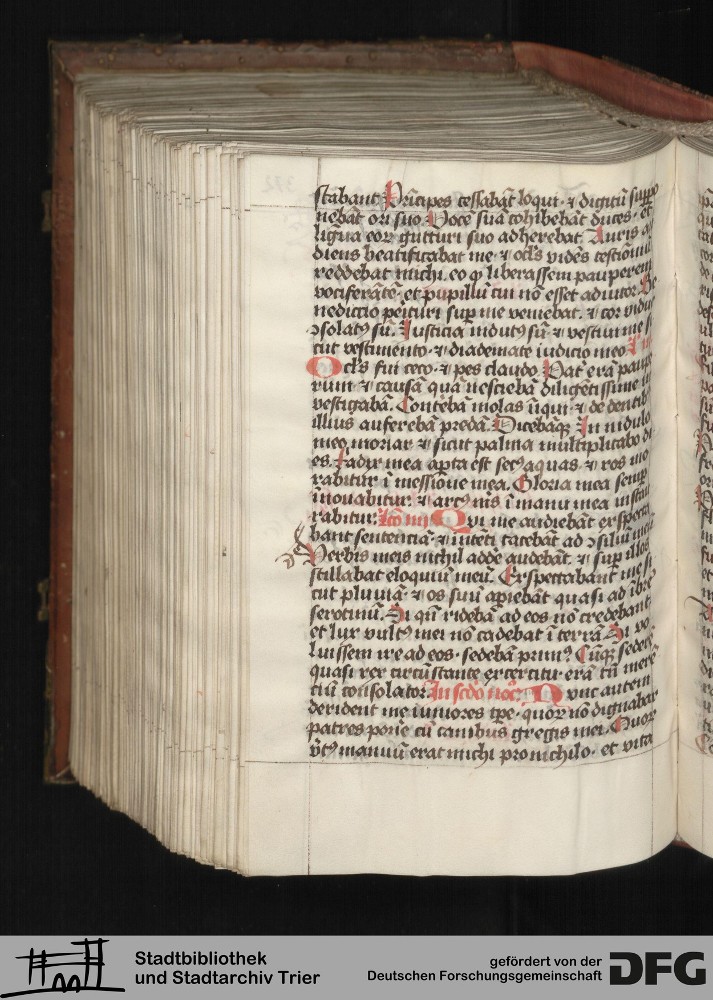 stabant Prīcipes cessabāt loqui · ⁊ digitū suppo
nebāt ori suo Uocē suā cohibebāt duces · et
ligua eoꝝ gutturi suo adherebat Auris au
diens beatificabat me · ⁊ ocl̄s vidēs testīoniū
reddebat michi eo ꝙ liberassem pauperem
vociferātē · et pupillū cui nō esset adiutor Be
nedictio peїturi sup̄ me veniebat · ⁊ cor vidue
ↄsolatꝰ sū · Justicia indutꝰ sū · ⁊ vestiui me si
cut vestimento · ⁊ diademate iudicio meo
Ocl̄s fui ceco · ⁊ pes claudo Pat̄ erā paupe
rum · ⁊ causā quā nesciebā diligētissime in
vestigabā · Conterebā molas īiqui · ⁊ de dentibꝰ
illius auferebā predā · Dicebāqꝫ In nidulo
meo moriar ⁊ sicut palma multiplicabo di
es · Radix mea apta est secꝰ aquas · ⁊ ros mo
rabitur ī messione mea · Gloria mea semp̄
īnouabitur · ⁊ arcꝰ mīs ī manu mea instau
rabitur · Qui me audiebāt exspecta
bant sentenciā · ⁊ ītēti tacebāt ad ↄsiliū meū
Uerbis meis nichil adde audebāt · ⁊ sup̄ illos
stillabat eloquiū meū · Exspectabant me si
cut pluuiā · ⁊ os suū apiebāt quasi ad ībrē
serotinū · Si qn̄ ridebā ad eos nō credebant
et lux vultꝰ mei nō cadebat ī terrā Si vo
luissem ire ad eos · sedebā primꝰ · Cūqꝫ sederē
quasi rex circūstante exercitu · erā tn̄ mere
tiū consolator · In scd̄o noc̄ · Nunc autem
derident me iuniores tp̄e · quoꝝ nō dignabar
patres pone cū canibus gregis mei · Quoꝝ
v̄tꝰ manuū erat michi pro nichilo · et vita
Stadtbibliothek
und Stadtarchiv Trier
gefördert von der
Deutschen Forschungsgemeinschaft
DFG